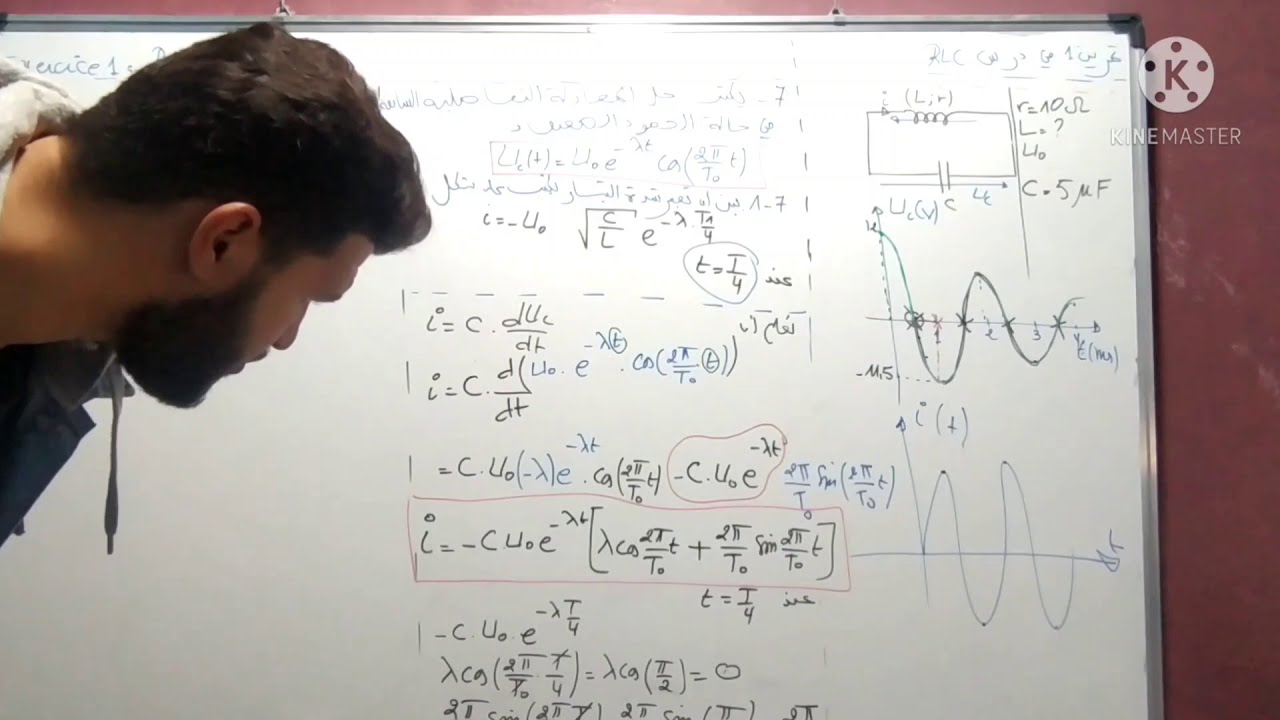 تمرين 1 في درس RLC
Exercice 1 :
KINEMASTER
7- يكتب حل المعادلة التفاضلية السابقة
في حالة الخمود الضعيف بـ
Uc(t) = U₀ e^(-λt) cos(2π/T₀ t)
7-1 بين أن تعبير شدة التيار يكتب على شكل
i = -U₀ √(C/L) e^(-λ·T/4)
عند t = T/4
نعلم أن
i = C · dUc/dt
i = C · d(U₀ · e^(-λt) · cos(2π/T₀ (t)))/dt
= C·U₀(-λ)e^(-λt) · cos(2π/T₀ t) - C·U₀e^(-λt) 2π/T₀ sin(2π/T₀ t)
i = -CU₀e^(-λt) [λcos 2π/T₀ t + 2π/T₀ sin 2π/T₀ t]
عند t = T/4
-C·U₀·e^(-λT/4)
λcos(2π/T₀ · T/4) = λcos(π/2) = 0
i (L,r)
r=10Ω
L=?
U₀
C=5μF
Uc
C
Uc(V)
12
1 2 3
t(ms)
-11.5
i(t)
t